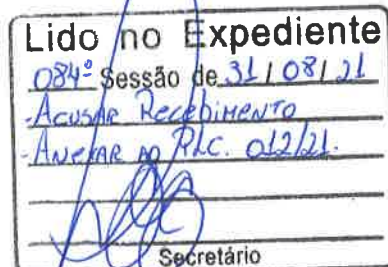 Lido no Expediente
084ª Sessão de 31/08/21
-Acusar Recebimento
-Anexar ao PLC. 012/21.
Secretário